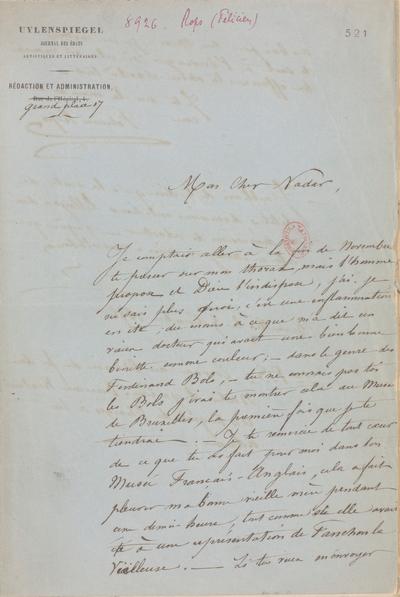 8926. Rops (Félicien)
521
UYLENSPIEGEL
JOURNAL DES ÉBATS
ARTISTIQUES ET LITTÉRAIRES
RÉDACTION ET ADMINISTRATION,
Rue de l'Hôpital, 4.
grand place 17
Mon Cher Nadar,
Je comptais aller à la fin de Novembre
te presser sur mon thorax, mais l'homme
propose et Dieu l'indispose, j'ai je
ne sais plus quoi, c'est une inflammation
en ite, du moins à ce que m'a dit un
vieux docteur qui avait une bien bonne
binette comme couleur; — dans le genre des
Ferdinand Bols, — tu ne connais pas toi
les Bols j'irai te montrer cela au Musée
de Bruxelles, la première fois que je te
tiendrai. — Je te remercie de tout cœur
de ce que tu as fait pour moi dans ton
Musée Français-Anglais, cela a fait
pleurer ma bonne vieille mère pendant
une demie heure, tout comme si elle avait
été à une représentation de Fanchon la
Vielleuse. — Si tu veux m'envoyer